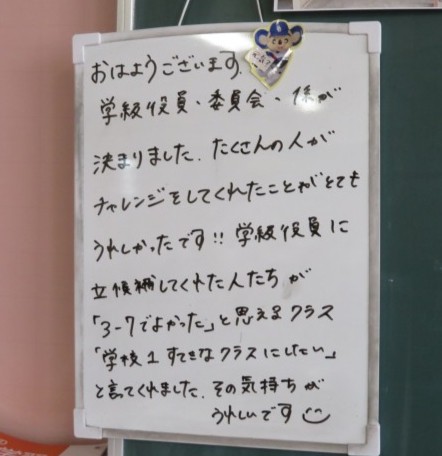 おはようございます.
学級役員、委員会、係が
決まりました. たくさんの人が
チャレンジをしてくれたことがとても
うれしかったです!! 学級役員に
立候補してくれた人たちが
「3-7でよかった」と思えるクラス
「学校1すてきなクラスにしたい」
と言ってくれました. その気持ちが
うれしいです